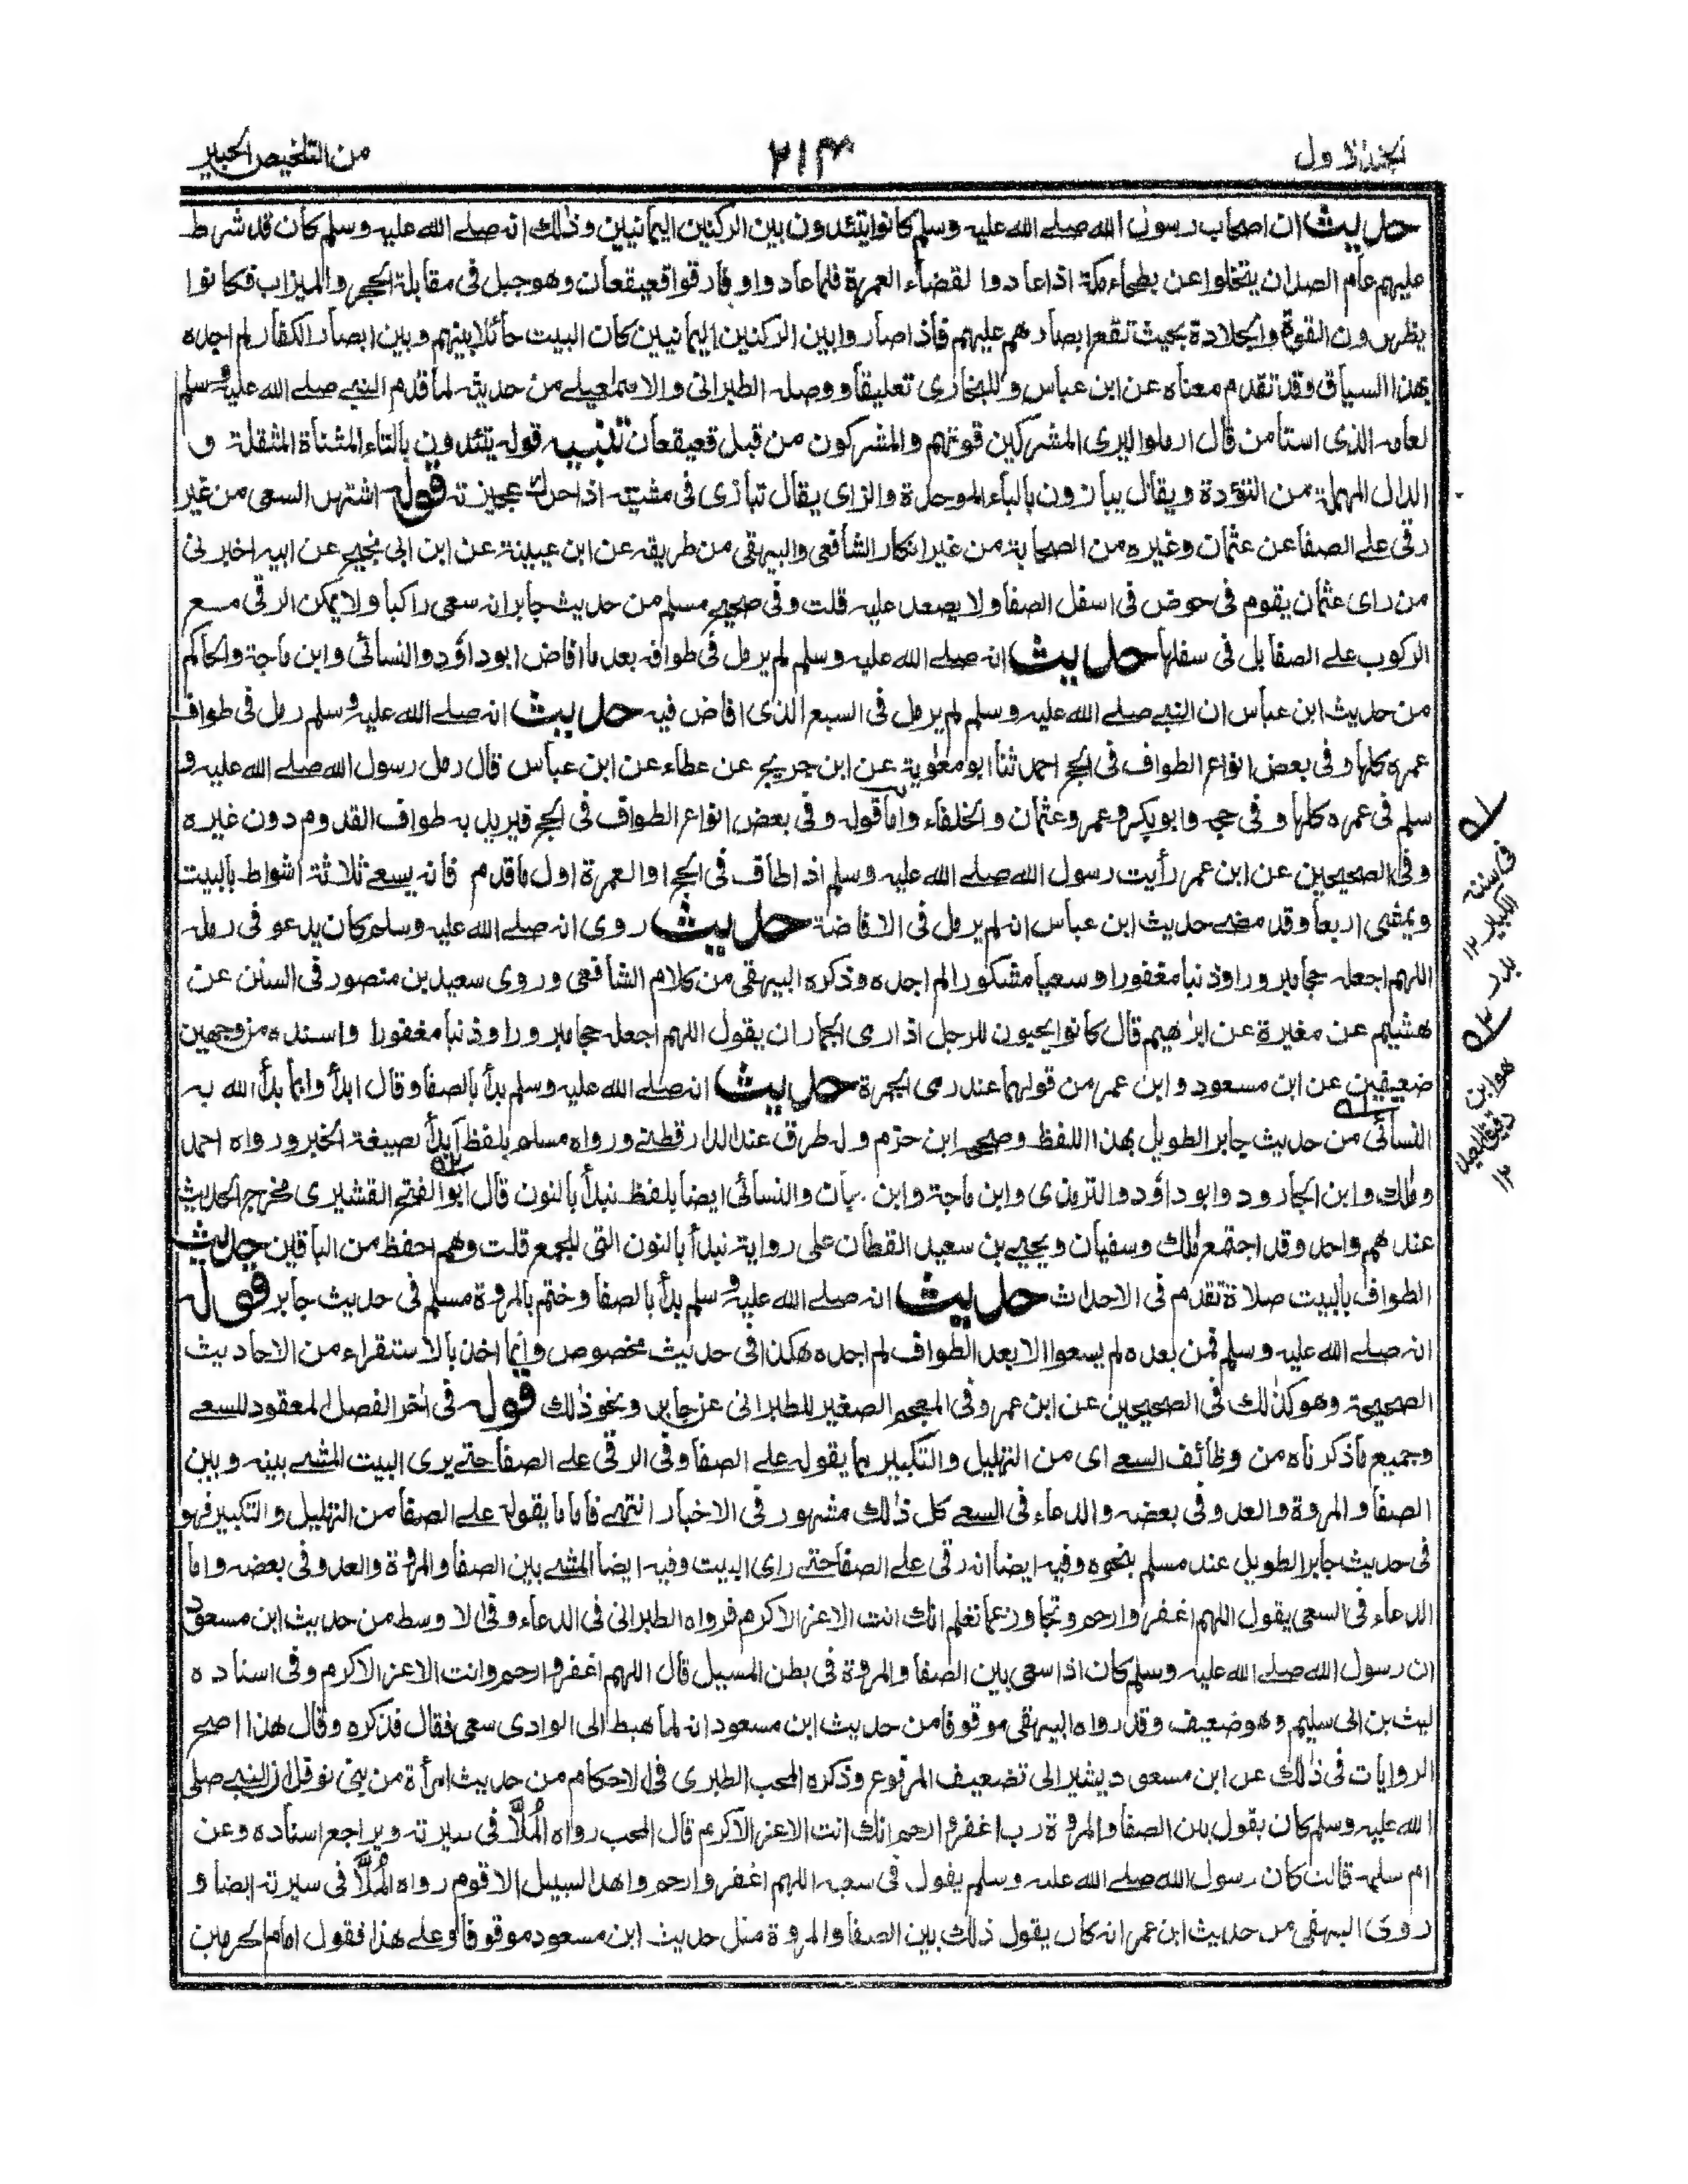 الجلد الاول
۲۱۴
من التلخيص الحبير
حديث ان اصحاب رسول الله صلے الله عليہ وسلم كانوا يتئدون بين الركنين اليمانيين وذلك انه صلے الله عليہ وسلم كان قد شرط
عليهم عام الصد ان يتخلوا عن بطحاء مكة اذا عادوا لقضاء العمرة فلما عادوا وفارقوا قعيقعان وهو جبل فى مقابلة الحجر والميزاب فكانوا
يظهرون القوة والجلادة بحيث تقع ابصارهم عليهم فاذا صاروا بين الركنين اليمانيين كان البيت حائلا بينهم وبين ابصار الكفار لم اجده
بهذا السياق وقد تقدم معناه عن ابن عباس وللبخارى تعليقا ووصله الطبرانى والاسمعيلے من حديثه لما قدم النبے صلے الله عليہ وسلم
لعامه الذى استامن قال ارملوا ليرى المشركين قوتهم والمشركون من قبل قعيقعان تنبيه قوله يتئدون بالتاء المثناة المثقلة و
الدال المهملة من التؤدة ويقال يبازون بالباء الموحدة والزاى يقال تبازى فى مشيته اذا حرك عجيزته قوله اشتهر السعى من غير
رقى علے الصفا عن عثمان وغيره من الصحابة من غير انكار الشافعى والبيهقى من طريقه عن ابن عيينة عن ابن ابى نجيح عن ابيه اخبرنى
من راى عثمان يقوم فى حوض فى اسفل الصفا ولا يصعد عليه قلت وفى صحيح مسلم من حديث جابر انه سعى راكبا ولا يمكن الرقى مع
الركوب علے الصفا بل فى سفلها حديث انه صلے الله عليه وسلم لم يرمل فى طوافه بعد ما افاض ابوداؤد والنسائى وابن ماجة والحاكم
من حديث ابن عباس ان النبے صلے الله عليه وسلم لم يرمل فى السبع الذى افاض فيه حديث انه صلے الله عليه وسلم رمل فى طواف
عمره كلها وفى بعض انواع الطواف فى الحج احمد ثنا ابو معٰوية عن ابن جريج عن عطاء عن ابن عباس قال رمل رسول الله صلے الله عليه و
سلم فى عمره كلها وفى حجه وابوبكر وعمر وعثمان والخلفاء واما قوله وفى بعض انواع الطواف فى الحج فيريد به طواف القدوم دون غيره
وفى الصحيحين عن ابن عمر رأيت رسول الله صلے الله عليه وسلم اذ اطاف فى الحج او العمرة اول ما قدم فانه يسعے ثلاثة اشواط بالبيت
ويمشى اربعا وقد مضے حديث ابن عباس انه لم يرمل فى الافاضة حديث روى انه صلے الله عليه وسلم كان يدعو فى رمله
اللهم اجعله حجا مبرورا وذنبا مغفورا وسعيا مشكورا لم اجده وذكره البيهقى من كلام الشافعى وروى سعيد بن منصور فى السنن عن
هشيم عن مغيرة عن ابرٰهيم قال كانوا يحبون للرجل اذا رمى الجمار ان يقول اللهم اجعله حجا مبرورا وذنبا مغفورا واسنده من وجهين
ضعيفين عن ابن مسعود وابن عمر من قولهما عند رمى الجمرة حديث انه صلے الله عليه وسلم بدأ بالصفا وقال ابدأوا بما بدأ الله به
النسائى من حديث جابر الطويل بهذا اللفظ وصححه ابن حزم وله طرق عند الدارقطنے ورواه مسلم بلفظ أبدأ بصيغة الخبر ورواه احمد
ومالك وابن الجارود وابو داؤد والترمذى وابن ماجة وابن حبان والنسائى ايضا بلفظ نبدأ بالنون قال ابو الفتح القشيرى مخرج الحديث
عندهم واحد وقد اجتمع مٰلك وسفيان ويحيے بن سعيد القطان على رواية نبدأ بالنون التى للجمع قلت وهم احفظ من الباقين حديث
الطواف بالبيت صلاة تقدم فى الاحداث حديث انه صلے الله عليه وسلم بدأ بالصفا وختم بالمروة مسلم فى حديث جابر قوله
انه صلے الله عليه وسلم فمن بعده لم يسعوا الا بعد الطواف لم اجده هكذا فى حديث مخصوص وانما اخذ بالاستقراء من الاحاديث
الصحيحة وهو كذٰلك فى الصحيحين عن ابن عمر وفى المعجم الصغير للطبرانى عن جابر ونحو ذٰلك قوله فى اٰخر الفصل المعقود للسعے
وجميع ما ذكرناه من وظائف السعے اى من التهليل والتكبير بما يقوله علے الصفا وفى الرقى علے الصفا حتے يرى البيت المشے بينه وبين
الصفا والمروة والعدو فى بعضه والدعاء فى السعے كل ذٰلك مشهور فى الاخبار انتهے فاما ما يقوله علے الصفا من التهليل والتكبير فهو
فى حديث جابر الطويل عند مسلم بنحوه وفيه ايضا انه رقى علے الصفا حتے راى البيت وفيه ايضا المشے بين الصفا والمروة والعدو فى بعضه واما
الدعاء فى السعى يقول اللهم اغفر وارحم وتجاوز عما تعلم انك انت الاعز الاكرم فرواه الطبرانى فى الدعاء وفى الاوسط من حديث ابن مسعود
ان رسول الله صلے الله عليه وسلم كان اذا سعى بين الصفا والمروة فى بطن المسيل قال اللهم اغفر وارحم وانت الاعز الاكرم وفى اسناده
ليث بن ابى سليم وهو ضعيف وقد رواه البيهقى موقوفا من حديث ابن مسعود انه لما هبط الى الوادى سعى فقال فذكره وقال هذا اصح
الروايات فى ذٰلك عن ابن مسعود يشير الى تضعيف المرفوع وذكره المحب الطبرى فى الاحكام من حديث امرأة من بنى نوفل ان النبے صلى
الله عليه وسلم كان يقول بين الصفا والمروة رب اغفر وارحم انك انت الاعز الاكرم قال المحب رواه المُلَّا فى سيرته ويراجع اسناده وعن
ام سلمة قالت كان رسول الله صلے الله عليه وسلم يقول فى سعيه اللهم اغفر وارحم واهد السبيل الاقوم رواه المُلَّا فى سيرته ايضا و
روى البيهقى من حديث ابن عمر انه كان يقول ذٰلك بين الصفا والمروة مثل حديث ابن مسعود موقوفا وعلے هذا فقول امام الحرمين
ل۱
فى سننه
الكبير ۱۲
بدر
ل۲
هو ابن
دقيق العيد
۱۲